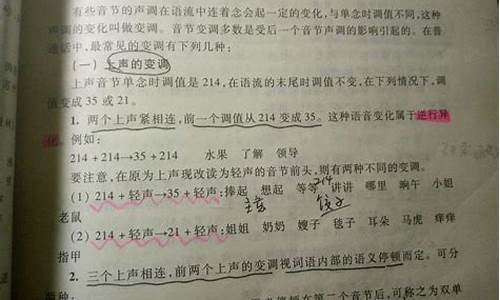 有些音节的声调在语流中连着念会起一定的变化,与单念时调值不同,这种
声调的变化叫做变调。音节变调多数是受后一个音节声调的影响引起的。在普
通话中,最常见的变调有下列几种:
(一)上声的变调
上声音节单念时调值是214,在语流的末尾时调值不变,在下列情况下,调
值变成35或21。
1. 两个上声紧相连,前一个调值从214变成35。这种语音变化属于逆行异
化。例如:
214+214→35+214 水果 了解 领导
要注意,在原为上声现改读为轻声的音节前头,则有两种不同的变调。
(1) 214+轻声→35+轻声:捧起 想起 等等 讲讲 哪里 晌午 小姐
老鼠
(2) 214+轻声→21+轻声:姐姐 奶奶 嫂子 毯子 耳朵 马虎 痒痒
指甲
2. 三个上声相连,前两个上声的变调视词语内部的语义停顿而定。可分
214